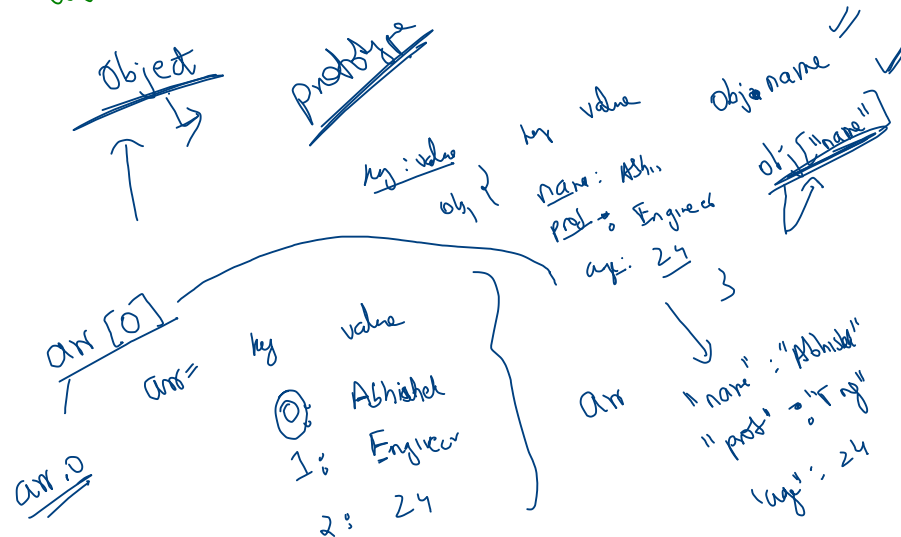 object
prototype
key value
obj.name
key: value
obj {
name: Abhi
prof: Engineer
age: 24
}
obj["name"]
arr[0]
arr=
key value
0: Abhishek
1: Engineer
2: 24
arr.0
arr
"name": "Abhishek"
"prof": "Eng"
"age": 24